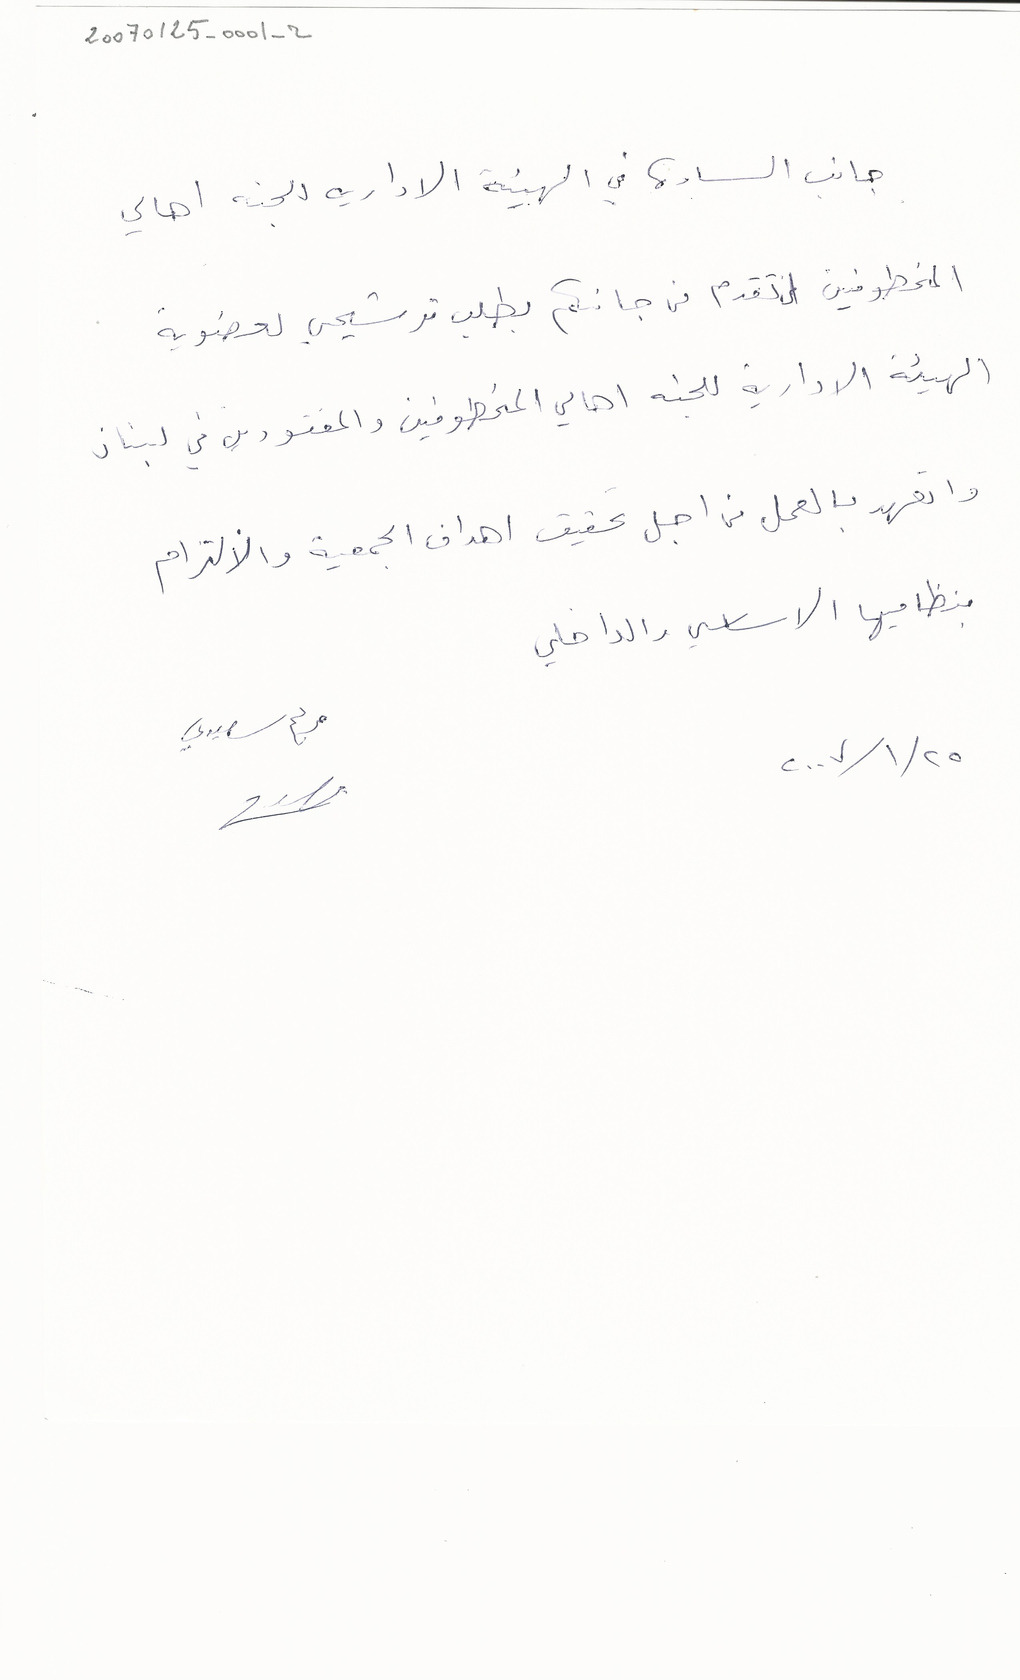 20070125-0001-2
جانب السادة في الهيئة الادارية للجنه اهالي
المخطوفين اتقدم من جانبكم بطلب ترشيحي لعضوية
الهيئة الادارية للجنه اهالي المخطوفين والمفقودين في لبنان
واتعهد بالعمل من اجل تحقيق اهداف الجمعية والالتزام
بنظاميها الاساسي والداخلي
٢٥/١/٢٠٠٧